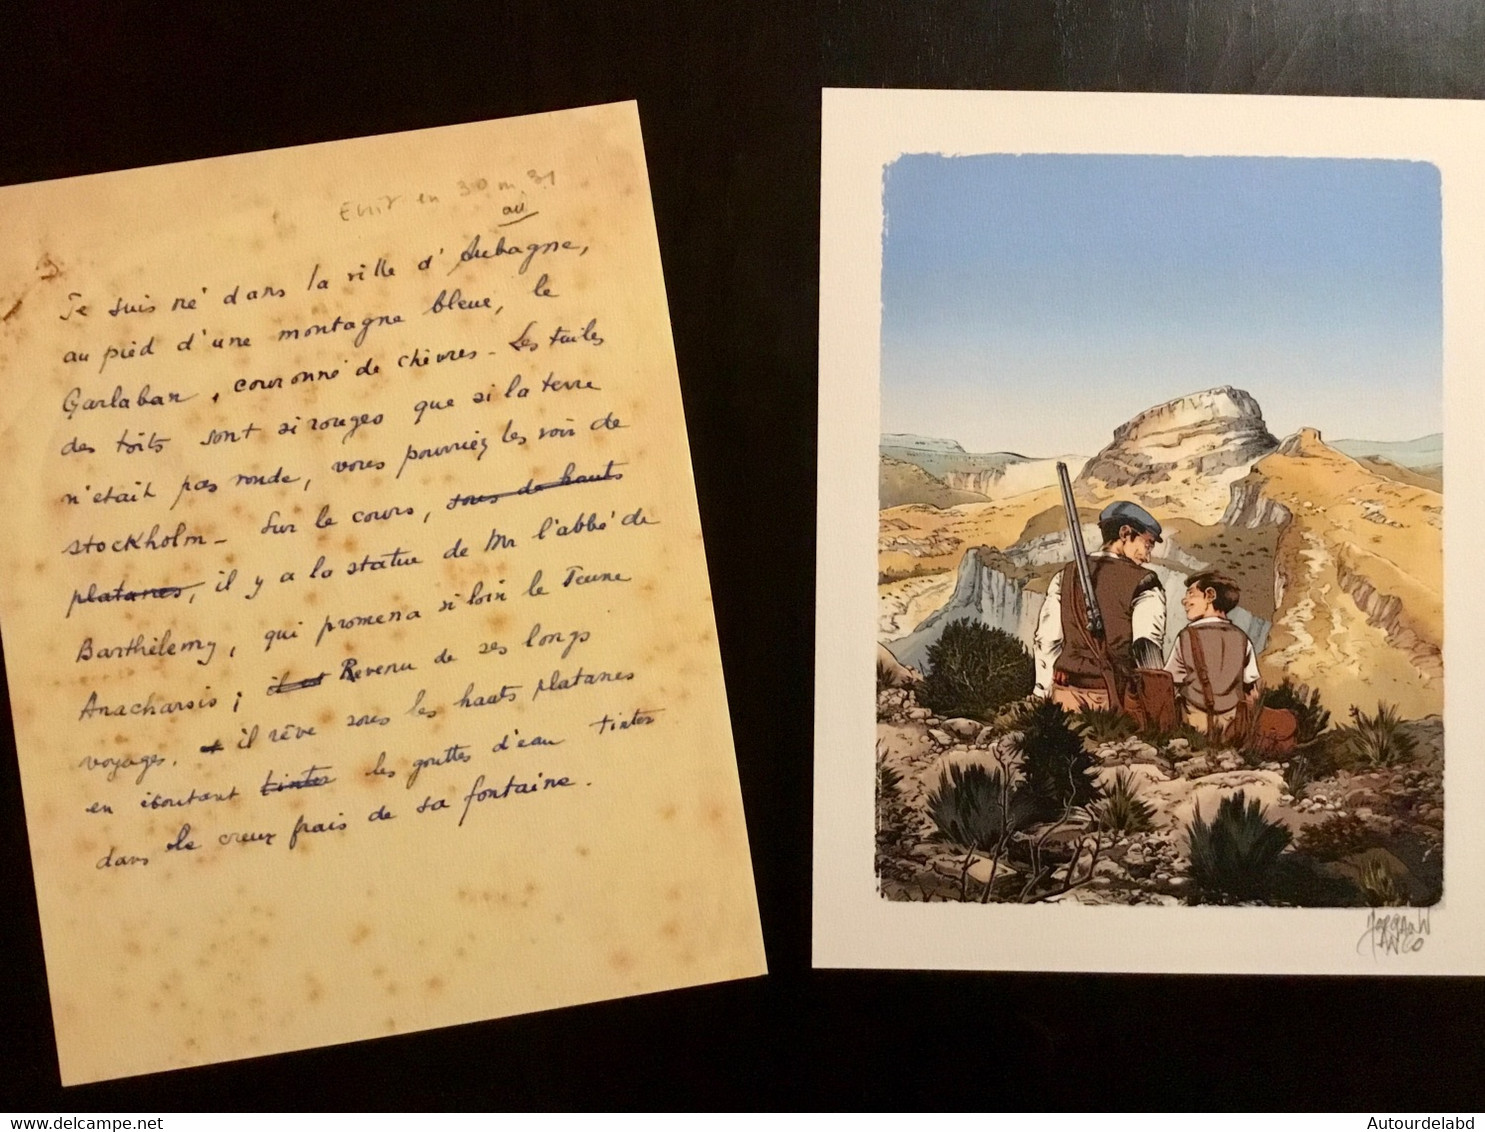 Ecrit en 30 m. 31
au
Je suis né dans la ville d'Aubagne,
au pied d'une montagne bleue, le
Garlaban, couronné de chèvres - Les tuiles
des toits sont si rouges que si la terre
n'était pas ronde, vous pourriez les voir de
stockholm - Sur le cours, sous de hauts
platanes, il y a la statue de Mr l'abbé de
Barthélemy, qui promena si loin le Jeune
Anacharsis ; il est Revenu de ses longs
voyages. et il rêve sous les hauts platanes
en écoutant tinter les gouttes d'eau tinter
dans le creux frais de sa fontaine.
MORGANN
TANCO
Autourdelabd
delcampe.net